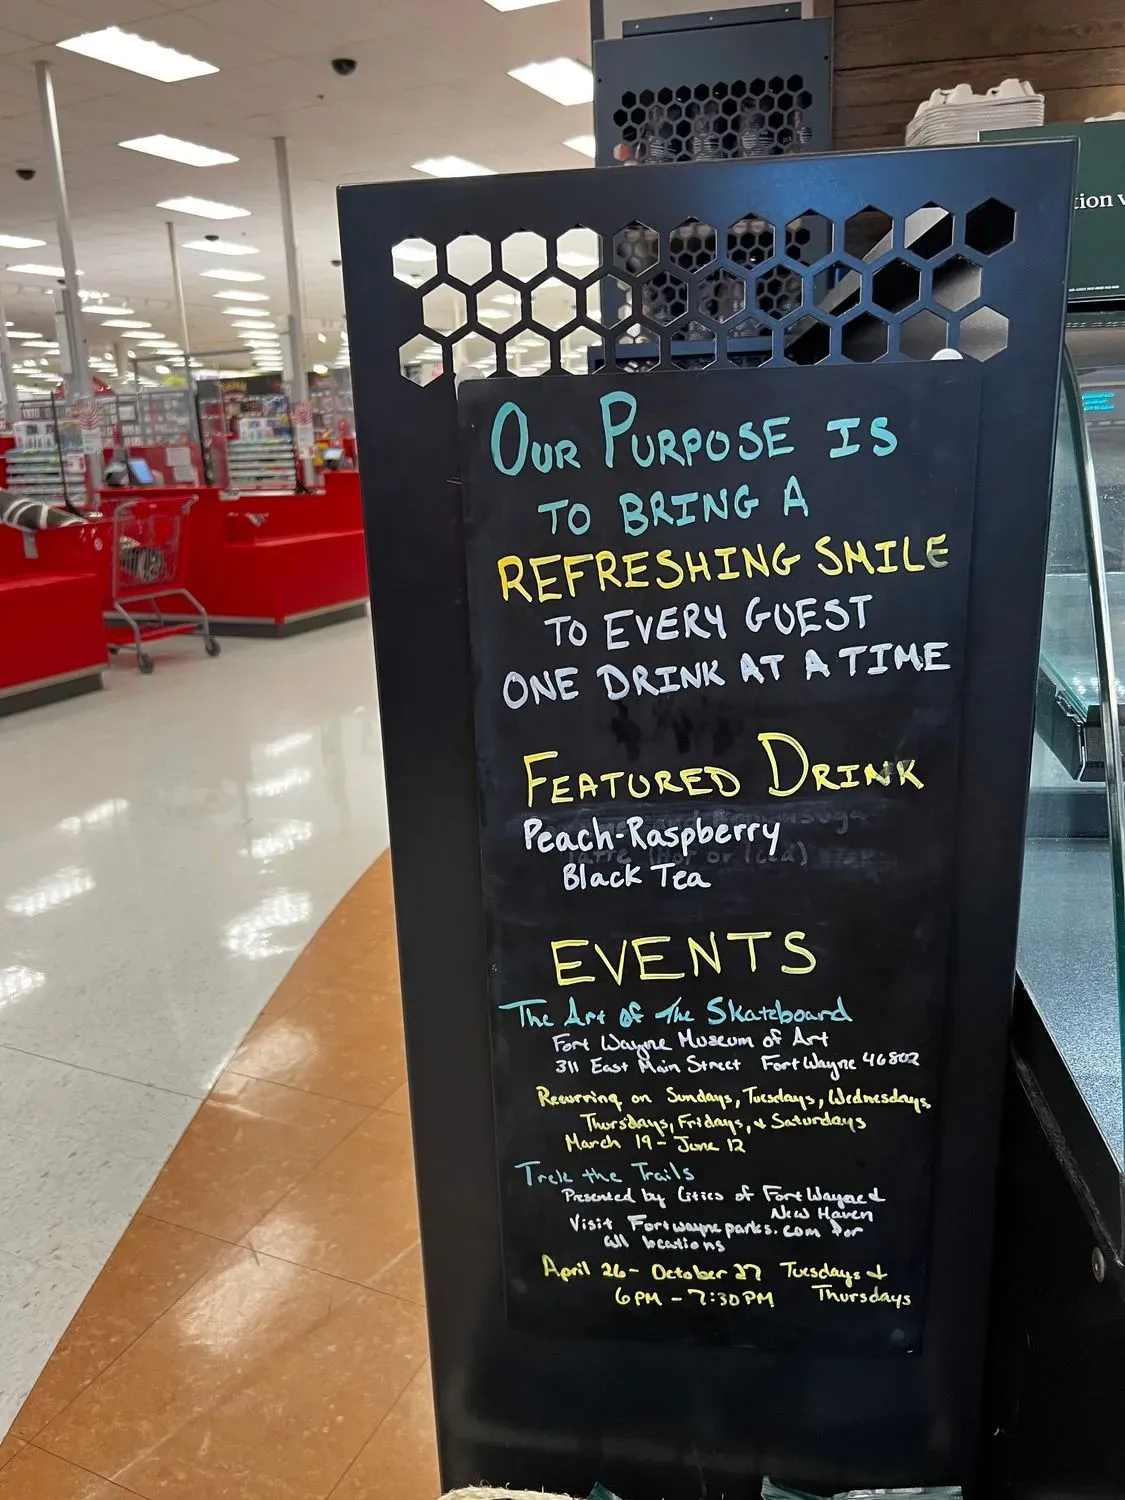 OUR PURPOSE IS
TO BRING A
REFRESHING SMILE
TO EVERY GUEST
ONE DRINK AT A TIME
FEATURED DRINK
Peach-Raspberry
Black Tea
EVENTS
The Art of The Skateboard
Fort Wayne Museum of Art
311 East Main Street Fort Wayne 46802
Recurring on Sundays, Tuesdays, Wednesdays,
Thursdays, Fridays, + Saturdays
March 19 - June 12
Trek the Trails
Presented by Cities of Fort Wayne &
New Haven
Visit Fortwayneparks.com for
all locations
April 26 - October 27 Tuesdays +
6PM - 7:30PM Thursdays
tion